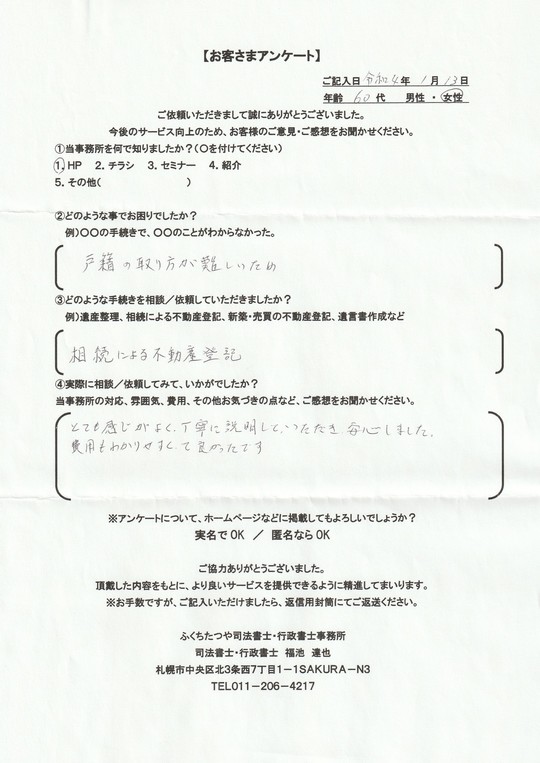 【お客さまアンケート】
ご記入日 令和4年 1月 13日
年齢 60代 男性 ・ 女性
ご依頼いただきまして誠にありがとうございました。
今後のサービス向上のため、お客様のご意見・ご感想をお聞かせください。
①当事務所を何で知りましたか?(〇を付けてください)
1. HP 2. チラシ 3. セミナー 4. 紹介
5. その他( )
②どのような事でお困りでしたか?
例)〇〇の手続きで、〇〇のことがわからなかった。
戸籍の取り方が難しいため
③どのような手続きを相談/依頼していただきましたか?
例)遺産整理、相続による不動産登記、新築・売買の不動産登記、遺言書作成など
相続による不動産登記
④実際に相談/依頼してみて、いかがでしたか?
当事務所の対応、雰囲気、費用、その他お気づきの点など、ご感想をお聞かせください。
とても感じがよく、丁寧に説明していただき安心しました。
費用もわかりやすくて良かったです
※アンケートについて、ホームページなどに掲載してもよろしいでしょうか?
実名でOK / 匿名ならOK
ご協力ありがとうございました。
頂戴した内容をもとに、より良いサービスを提供できるように精進してまいります。
※お手数ですが、ご記入いただけましたら、返信用封筒にてご返送ください。
ふくちたつや司法書士・行政書士事務所
司法書士・行政書士 福池 達也
札幌市中央区北3条西7丁目1-1SAKURA-N3
TEL011-206-4217